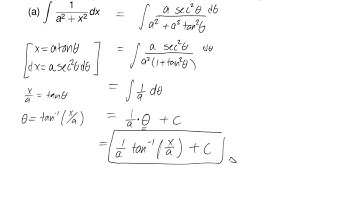 (a) ∫ 1/(a² + x²) dx = ∫ a sec²θ dθ / (a² + a² tan²θ)
[x = a tanθ
dx = a sec²θ dθ]
= ∫ a sec²θ / (a² (1 + tan²θ)) dθ
x/a = tanθ
= ∫ 1/a dθ
θ = tan⁻¹(x/a)
= 1/a · θ + C
= 1/a tan⁻¹(x/a) + C